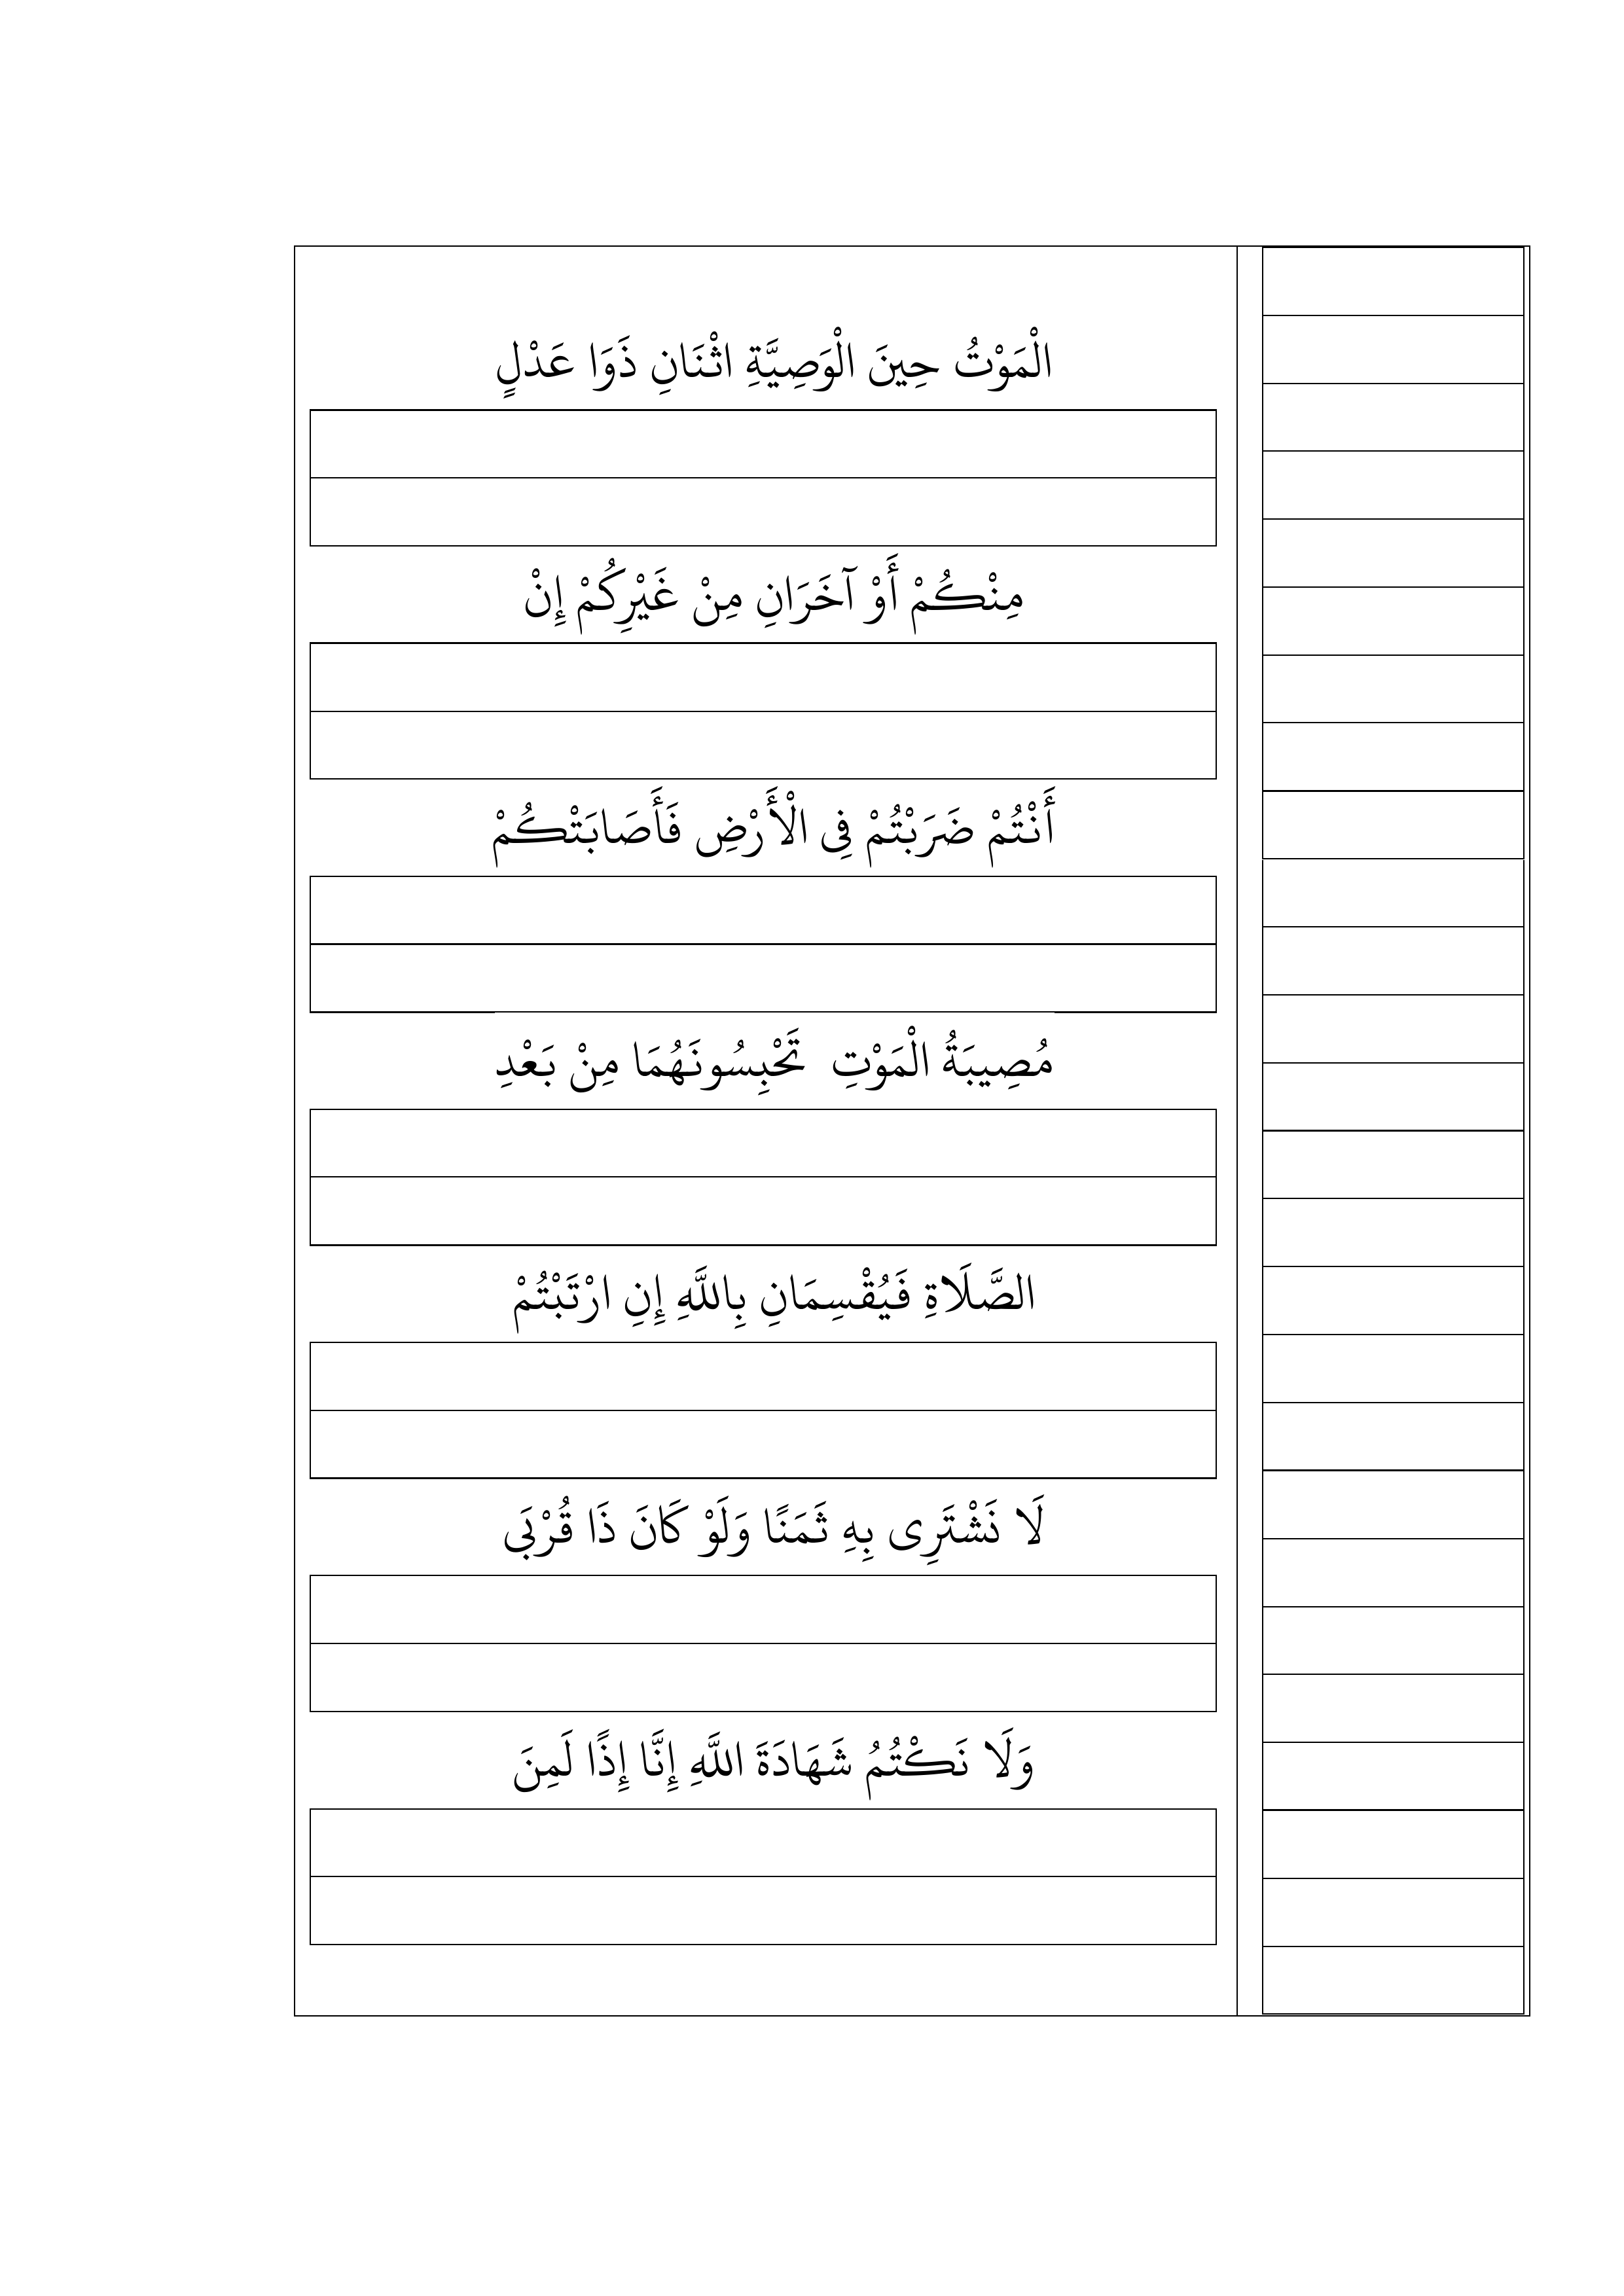 الْمَوْتُ حِينَ الْوَصِيَّةِ اثْنَانِ ذَوَا عَدْلٍ
مِنْكُمْ أَوْ آخَرَانِ مِنْ غَيْرِكُمْ إِنْ
أَنْتُمْ ضَرَبْتُمْ فِى الْأَرْضِ فَأَصَابَتْكُمْ
مُصِيبَةُ الْمَوْتِ تَحْبِسُونَهُمَا مِنْ بَعْدِ
الصَّلَاةِ فَيُقْسِمَانِ بِاللَّهِ إِنِ ارْتَبْتُمْ
لَا نَشْتَرِى بِهِ ثَمَنًا وَلَوْ كَانَ ذَا قُرْبَى
وَلَا نَكْتُمُ شَهَادَةَ اللَّهِ إِنَّا إِذًا لَمِنَ